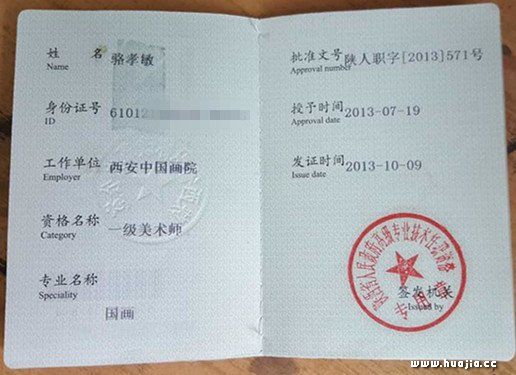 姓 名 骆孝敏
Name
身份证号 61012
ID
工作单位 西安中国画院
Employer
资格名称 一级美术师
Category
专业名称
Speciality
国画
批准文号 陕人职字[2013]571号
Approval number
授予时间 2013-07-19
Approval date
发证时间 2013-10-09
Issue date
签发机关
Issued by
专用章
www.huajia.cc